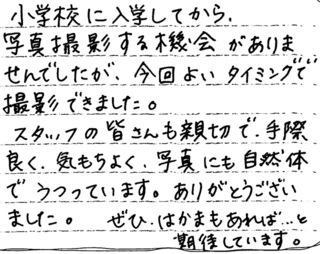 小学校に入学してから、
写真撮影する機会がありま
せんでしたが、今回よいタイミングで
撮影できました。
スタッフの皆さんも親切で、手際
良く、気もちよく、写真にも自然体
でうつっています。ありがとうござい
ました。 ぜひ、はかまもあれば…と
期待しています。